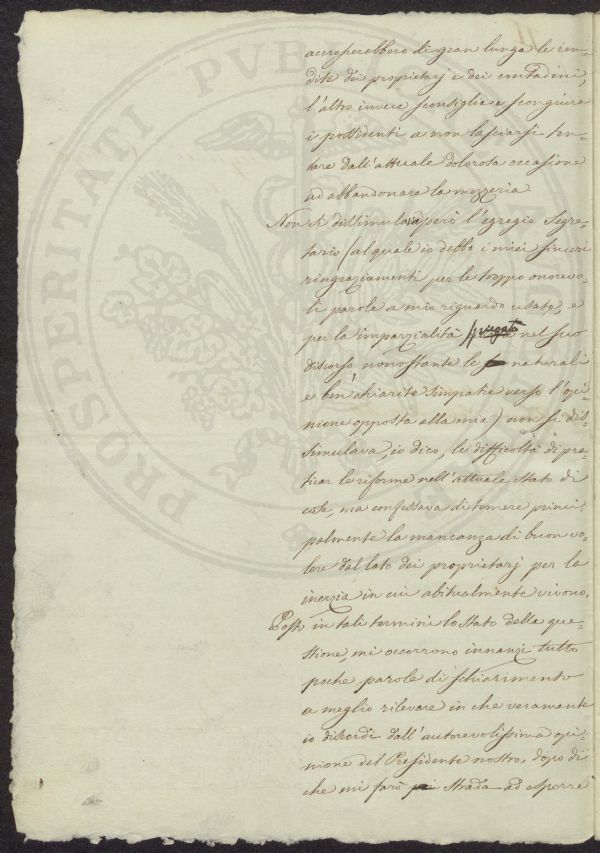 accrescerebbero di gran lunga le ren-
dite dei proprietarj e dei contadini,
l'altro invece sconsiglia e scongiura
i possidenti a non lasciarsi ten-
tare dall'attuale dolorosa occasione
ad abbandonare la mezzeria.
Non si dissimulava però l'egregio Segre-
tario (al quale io debbo i miei sinceri
ringraziamenti per le troppo onorevo-
li parole a mio riguardo usate, e
per la imparzialità spiegata nel suo
discorso nonostante le naturali
e ben chiarite simpatie verso l'opi-
nione opposta alla mia) non si dis-
simulava, io dico, le difficoltà di pra-
ticar le riforme nell'attuale stato di
cose, ma confessava di temere princi-
palmente la mancanza di buon vo-
lere dal lato dei proprietarj per la
inerzia in cui abitualmente vivono.
Posti in tali termini lo stato della que-
stione, mi occorrono innanzi tutto
poche parole di schiarimento
a meglio rilevare in che veramente
io discordi dall'autorevolissima opi-
nione del Presidente nostro, dopo di
che mi farò strada ad esporre
PROSPERITATI PVBLICAE